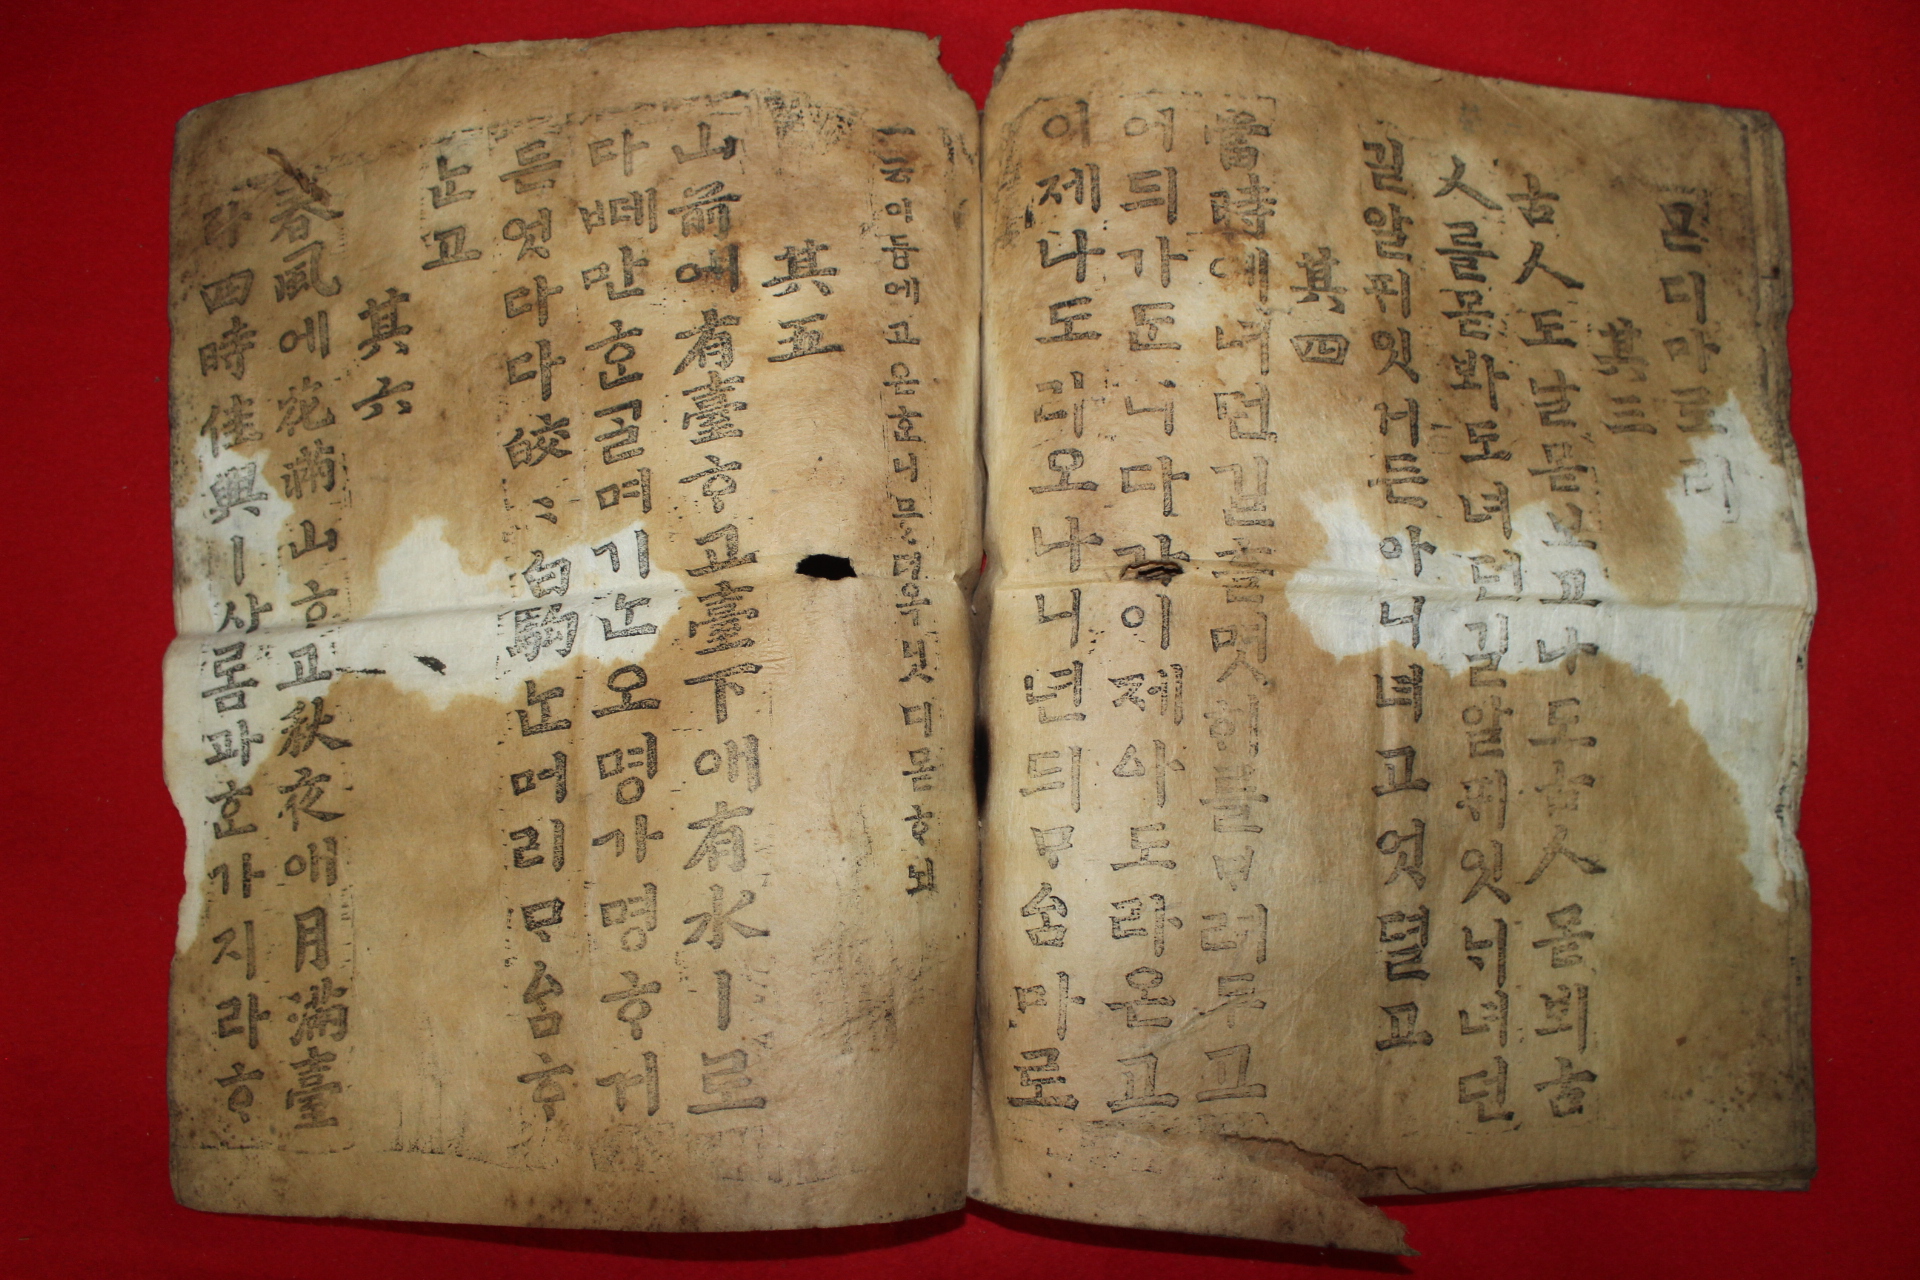 몯디마로리
其三
古人도날몯보고나도古人몯뵈古
人를몯봐도녀던길알ᄑᆡ잇ᄂᆡ녀던
길알ᄑᆡ잇거든아니녀고엇뎔고
其四
當時예녀던길흘몃ᄒᆡ를ᄇᆞ려두고
어듸가ᄃᆞᆫ니다가이제ᅀᅡ도라온고
이제나도라오나니년듸ᄆᆞᅀᆞᆷ마로
其五
山前에有臺ᄒᆞ고臺下애有水ㅣ로
다ᄠᅦ만ᄒᆞᆫᄀᆞᆯ며기ᄂᆞᆫ오명가명ᄒᆞ거
든엇다다皎〻白駒ᄂᆞᆫ머리ᄆᆞᅀᆞᆷᄒᆞ
ᄂᆞᆫ고
其六
春風에花滿山ᄒᆞ고秋夜애月滿臺
라四時佳興ㅣ사ᄅᆞᆷ과ᄒᆞᆫ가지라ᄒᆞ